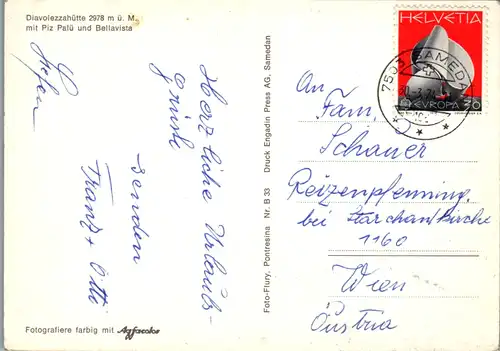 Diavolezzahütte 2978 m ü. M.
mit Piz Palü und Bellavista
Herzliche Urlaubs-
grüsse
senden
Franz + Otti
Stefan
Fotografiere farbig mit Agfacolor
Foto-Flury, Pontresina Nr. B 33 Druck Engadin Press AG, Samedan
HELVETIA
EUROPA 30
7503 SAMEDAN
An
Fam.
Schauer
Reizenpfenning.
bei Starchantkirche
1160
Wien
Östria